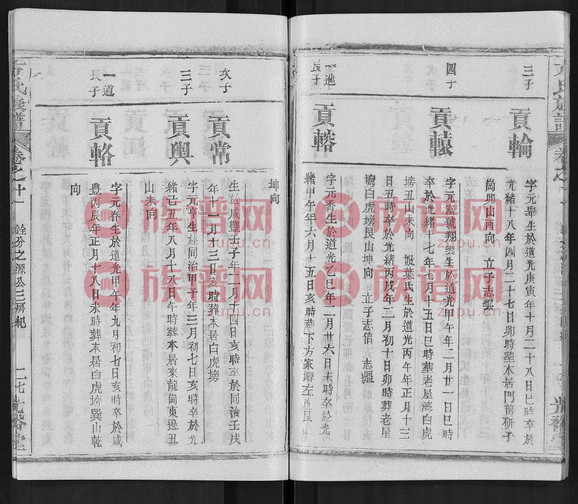 三子
貢輪
字元舉生於道光庚寅年十月二十八日亥時卒於
光緒十八年四月二十七日卯時葬本居門前
崗卯山酉向 立子志
四子
貢轅
生於道光甲午年二月廿一日巳時
卒於光緒十七年七月十五日巳時葬老屋灣白虎
塝丑山未向 娶葉氏生於道光丙午年正月十三
日丑時卒於光緒丙戌年二月初十日卯時葬老屋
灣白虎塝艮山坤向 立子志信 志
一進
長子
貢輅
字元香生於道光乙巳年二月廿六日未時卒於光
緒甲午年六月十五日亥時葬下方家
坤向
次子
貢常
生於咸豐壬子年二月十四日亥時卒於同治壬戌
年一月十三日亥時葬本居白虎塝
三子
貢輿
字元 生於同治甲子年三月初七日亥時卒於光
緒己丑年八月十六日午時葬本居來龍崗東邊丑
山未向
一道
長子
貢輅
字元春生於道光甲午年九月初七日亥時卒於咸
豐丙辰年正月十八日未時葬本居白虎塝巽山乾
向
方氏族譜
卷之十一
分之源公三房紀
二七
光裕堂
族譜網
zupu.cn